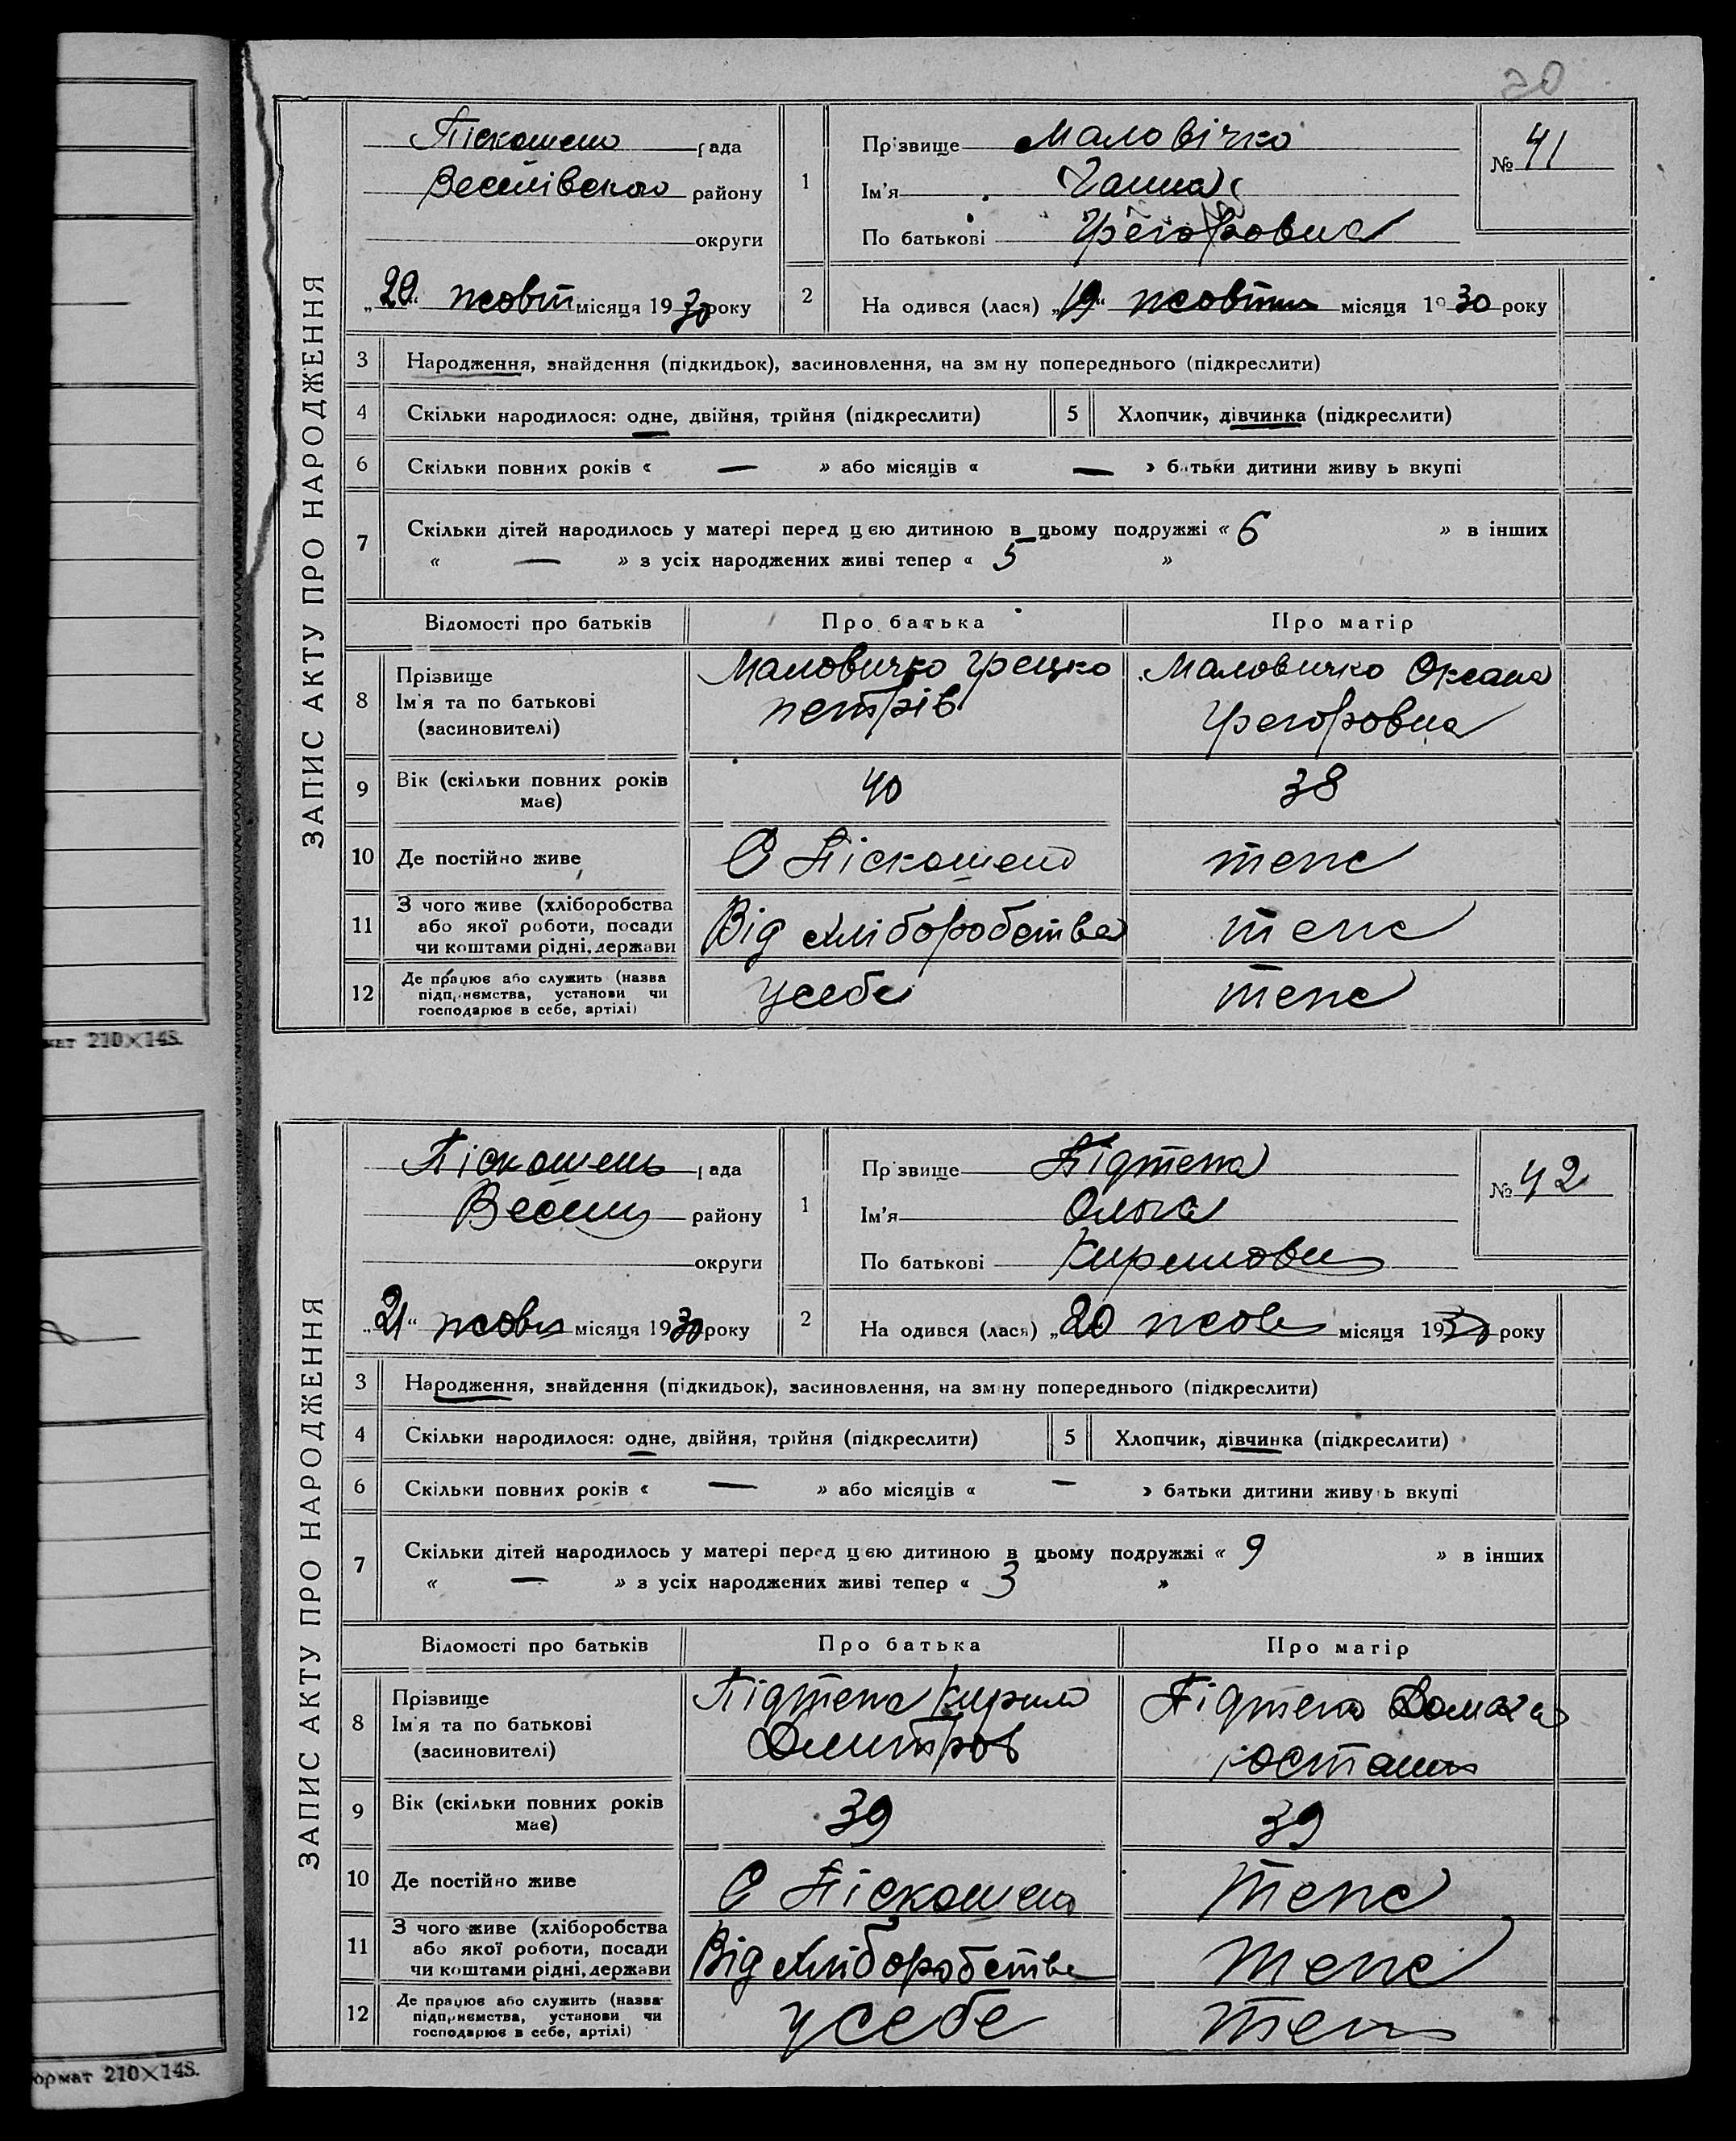 30
ЗАПИС АКТУ ПРО НАРОДЖЕННЯ
Піскошено рада
Веселівського району
округи
„20“ жовт місяця 1930 року
1 Прізвище Маловічко
Ім'я Ганна
По батькові Грегоровна
№ 41
2 Народився (лася) „19“ жовтня місяця 1930 року
3 Народження, знайдення (підкидьок), засиновлення, на зміну попереднього (підкреслити)
4 Скільки народилося: одне, двійня, трійня (підкреслити) 5 Хлопчик, дівчинка (підкреслити)
6 Скільки повних років « — » або місяців « — » батьки дитини живуть вкупі
7 Скільки дітей народилось у матері перед цією дитиною в цьому подружжі « 6 » в інших
« — » з усіх народжених живі тепер « 5 »
Відомості про батьків Про батька Про матір
8 Прізвище Ім'я та по батькові (засиновителі) Маловичко Грецко Петрів Маловичко Оксана Грегоровна
9 Вік (скільки повних років має) 40 38
10 Де постійно живе С Піскошено теже
11 З чого живе (хліборобства або якої роботи, посади чи коштами рідні, держави Від хліборобства теже
12 Де працює або служить (назва підприємства, установи чи господарює в себе, артілі) усебе теже
мат 210×148.
ЗАПИС АКТУ ПРО НАРОДЖЕННЯ
Піскошень рада
Весели району
округи
„21“ жовтн місяця 1930 року
1 Прізвище Підтепа
Ім'я Ольга
По батькові Кириловн
№ 42
2 Народився (лася) „20 жовт місяця 1930 року
3 Народження, знайдення (підкидьок), засиновлення, на зміну попереднього (підкреслити)
4 Скільки народилося: одне, двійня, трійня (підкреслити) 5 Хлопчик, дівчинка (підкреслити)
6 Скільки повних років « — » або місяців « — » батьки дитини живуть вкупі
7 Скільки дітей народилось у матері перед цією дитиною в цьому подружжі « 9 » в інших
« — » з усіх народжених живі тепер « 3 »
Відомості про батьків Про батька Про матір
8 Прізвище Ім'я та по батькові (засиновителі) Підтепа Кирило Дмитров Підтепа Домаха
9 Вік (скільки повних років має) 39 39
10 Де постійно живе С Піскошено теже
11 З чого живе (хліборобства або якої роботи, посади чи коштами рідні, держави Від хліборобства теже
12 Де працює або служить (назва підприємства, установи чи господарює в себе, артілі) усебе теже
ормат 210×148.